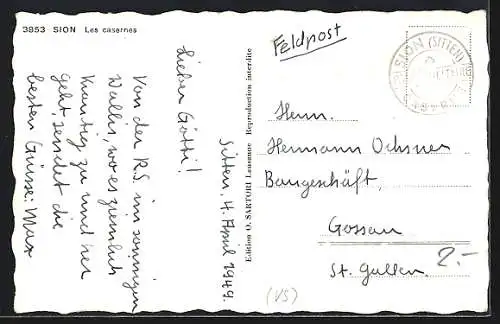 3853 SION Les casernes
Sitten, 4. April 1949.
Lieber Götti!
Von der R.S. im sonnigen
Wallis, wo es ziemlich
hin
geht, sendet die
besten Grüsse: Max
Edition O. SARTORI Lausanne Reproduction interdite
Feldpost
SION (SITTEN)
Herrn.
Hermann Ochsner
Baugeschäft,
Gossau
St. Gallen.
2.-
(VS)